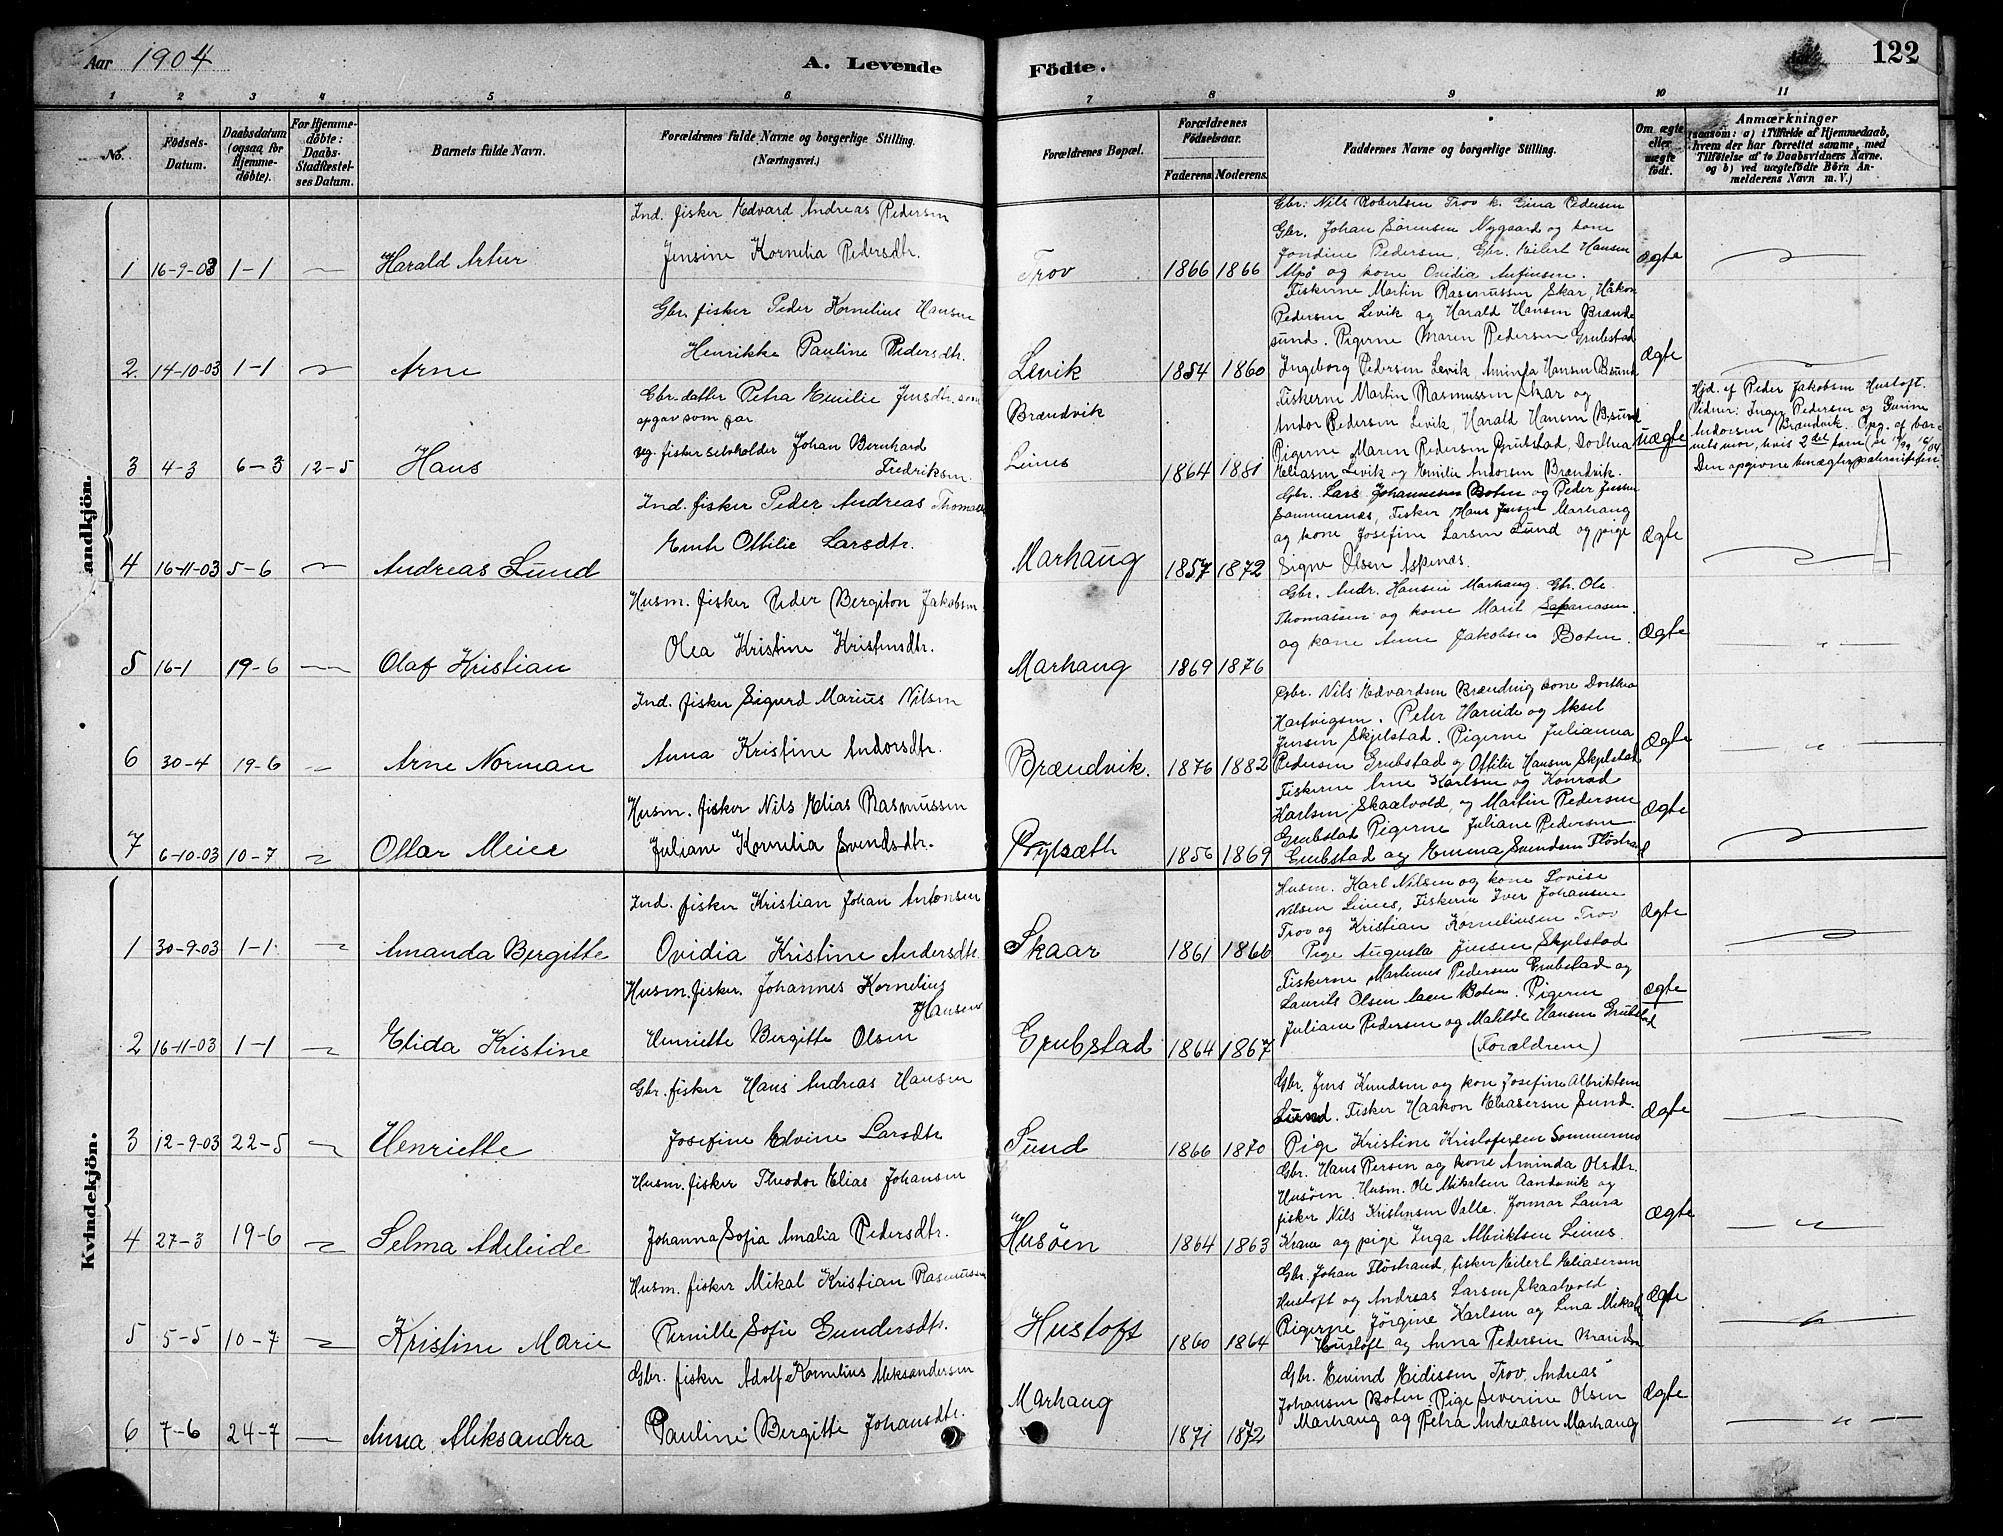 Aar 1904
A. Levende Födte.
122
1 2 3 4 5 6 7 8 9 10 11
No.
Födsels-Datum.
Daabsdatum (ogsaa for Hjemme-döbte).
For Hjemme-döbte: Daabs-Stadfæstel-ses Datum.
Barnets fulde Navn.
Forældrenes fulde Navne og borgerlige Stilling. (Næringsvei.)
Forældrenes Bopæl.
Forældrenes Födselsaar.
Faderens. Moderens.
Faddernes Navne og borgerlige Stilling.
Om ægte eller uægte födt.
Anmærkninger
(saasom: a) i Tilfælde af Hjemmedaab, hvem der har forrettet samme, med Tilföielse af to Daabsvidners Navne. og b) ved uægtefödte Börn An-melderens Navn m. V.)
andkjön.
1 16-9-03 1-1 Harald Artur
Ind. fisker Edvard Andreas Pedersen
Jensine Kornelia Pedersdtr.
Trov 1866 1866
Gbr. Nils Robertsen Trov k. Gina Pedersen
Gbr. Johan Sørensen Nygaard og kone
Jondine Pedersen, Gbr. Eilert Hansen
og kone Ovidia
ægte
2. 14-10-03 1-1 Arne
Gbr. fisker Peder Kornelius Hansen
Henrikke Pauline Pedersdtr.
Levik 1854 1860
Fiskerne Martin Rasmussen Skar, Håkon
Pedersen Levik og Harald Hansen Brænde
sund. Pigerne Maren Pedersen Grubstad
Ingeborg Pedersen Levik Aminda Hansen Bsund
ægte
3 4-3 6-3 12-5 Hans
Gbr. datter Petra Emilie Jensdtr. som
opgav som far
ug. fisker selvholder Johan Bernhard
Fredriksen.
Brændvik
Leines 1864 1881
Fiskerne Martin Rasmussen Skar og
Andor Pedersen Levik Harald Hansen Bsund
Pigerne Maren Pedersen Grubstad, Dorthea
Eliasen Levik og Emilie Andorsen Brændvik.
uægte
Hjd. af Peder Jakobsen Hustoft.
Vidner: Inger Pedersen og Gurine
Andorsen Brændvik. Opg. af bar-
nets mor, hvis 2det barn
Den opgivne benægter paterniteten.
4 16-11-03 5-6 Andreas Lund
Ind. fisker Peder Andreas Thomas
Ottilie Larsdtr.
Marhaug 1857 1872
Gbr. Lars Johannesen Boten og Peder Jensen
Sommernæs, Fisker Hans Jensen Marhaug
og kone Josefine Larsen Lund og pige
Signe Olsen Askenæs.
ægte
5 16-1 19-6 Olaf Kristian
Husm. fisker Peder Bergiton Jakobsen
Olea Kristine Kristensdtr.
Marhaug 1869 1876
Gbr. Andr. Hansen Marhaug. Gbr. Ole
Thomassen og kone Marit
og kone Anne Jakobsen Boten.
ægte
6 30-4 19-6 Arne Norman
Ind. fisker Sigurd Marius Nilsen
Anna Kristine Andorsdtr.
Brændvik. 1876 1882
Gbr. Nils Edvardsen Brændvig kone Dorthea
Hartvigsen. Peter Hareide og Aksel
Jensen Skjelstad. Pigerne Julianna
Pedersen Grubstad og Ottilie Hansen Skjelstad
ægte
7 6-10-03 10-7 Ottar Meier
Husm. fisker Nils Elias Rasmussen
Juliane Kornelia Svendsdtr.
1856 1869
Fiskerne Arne Karlsen og Konrad
Karlsen Skaalvold, og Martin Pedersen
Grubstad Pigerne Juliane Pedersen
Grubstad og Emma Svendsen Fløstrad
ægte
Kvindekjön.
1 30-9-03 1-1 Amanda Bergitte
Ind. fisker Kristian Johan Antonsen
Ovidia Kristine Andersdtr.
Skaar 1861 1866
Husm. Karl Nilsen og kone Lovise
Nilsen Leines, Fiskerne Iver Johansen
Trov og Kristian Korneliusen Trov
Pige Augusta Jensen Skjelstad
ægte
2 16-11-03 1-1 Elida Kristine
Husm. fisker. Johannes Kornelius
Hansen
Henriette Bergitte Olsen
Grubstad 1864 1867
Fiskerne Martinus Pedersen Grubstad og
Laurits Olsen Boten. Pigerne
Juliane Pedersen og Matilde Hansen Grubstad
(Forældrene)
ægte
3 12-9-03 22-5 Henriette
Gbr. fisker Hans Andreas Hansen
Josefine Edvine Larsdtr
Sund 1866 1870
Gbr. Jens Knudsen og kone Josefine Albriktsen
Lund. Fisker Haakon Eliasersen Sund.
Pige Kristine Kristofersen Sommernes
ægte
4 27-3 19-6 Selma Adeleide
Husm. fisker Theodor Elias Johansen
Johanna Sofia Amalia Pedersdtr.
Husøen 1864 1863
Gbr. Hans Persen og kone Aminda Olsdtr.
Husøen. Husm. Ole Mikalsen Aandvik og
fisker Nils Kristensen Valle. Jormor Laura
Krane og pige Inga Albriktsen Leines.
ægte
5 5-5 10-7 Kristine Marie
Husm. fisker Mikal Kristian Rasmussen
Pernille Sofie Gundersdtr.
Hustoft 1860 1864
Gbr. Johan Fløstrand, fisker Eilert Eliasersen
Hustoft og Andreas Larsen Skaalvold,
Pigerne Jörgine Karlsen og Lina Mikals
Hustoft og Anna Pedersen
ægte
6 7-6 24-7 Anna Aleksandra
Gbr. fisker Adolf Kornelius Aleksandersen
Pauline Bergitte Johansdtr.
Marhaug 1871 1872
Gbr. Eivind Eidissen Trov, Andreas
Johansen Boten. Pige Severine Olsen
Marhaug og Petra Andreasen Marhaug
ægte